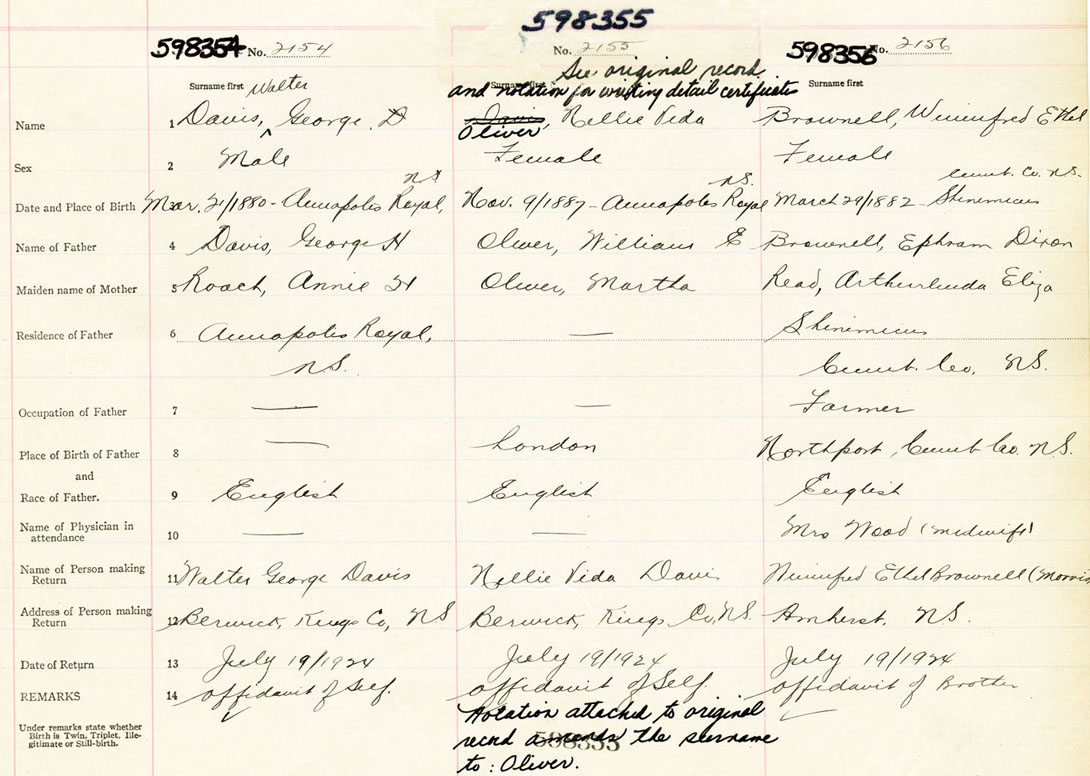 598355
598354 No. 2154 No. 2155 598356 No. 2156
See original record
Surname first Walter Surname first Surname first
and notation for existing detail certificate
Name 1 Davis, George D Davis, Nellie Vida Brownell, Winnifred Ethel
Oliver
Sex 2 Male Female Female
N.S. N.S. Cumb. Co. N.S.
Date and Place of Birth 3 Mar. 21/1880 - Annapolis Royal, Nov. 9/1887 - Annapolis Royal March 29/1882 - Shinimicus
Name of Father 4 Davis, George H Oliver, William E Brownell, Ephram Dixon
Maiden name of Mother 5 Roach, Annie H Oliver, Martha Read, Arthurlinda Eliza
Residence of Father 6 Annapolis Royal, — Shinimicus
N.S. Cumb. Co. N.S.
Occupation of Father 7 — — Farmer
Place of Birth of Father 8 — London Northport, Cumb Co. N.S.
and
Race of Father. 9 English English English
Name of Physician in
attendance 10 — — Mrs Wood (midwife)
Name of Person making
Return 11 Walter George Davis Nellie Vida Davis Winnifred Ethel Brownell (Morris
Address of Person making
Return 12 Berwick, Kings Co, NS Berwick, Kings Co, N.S. Amherst, N.S.
Date of Return 13 July 19/1924 July 19/1924 July 19/1924
REMARKS 14 affidavit of Self. affidavit of Self. affidavit of Brother
Under remarks state whether
Birth is Twin, Triplet, Ille-
gitimate or Still-birth.
Notation attached to original
record amends the surname
598355
to: Oliver.